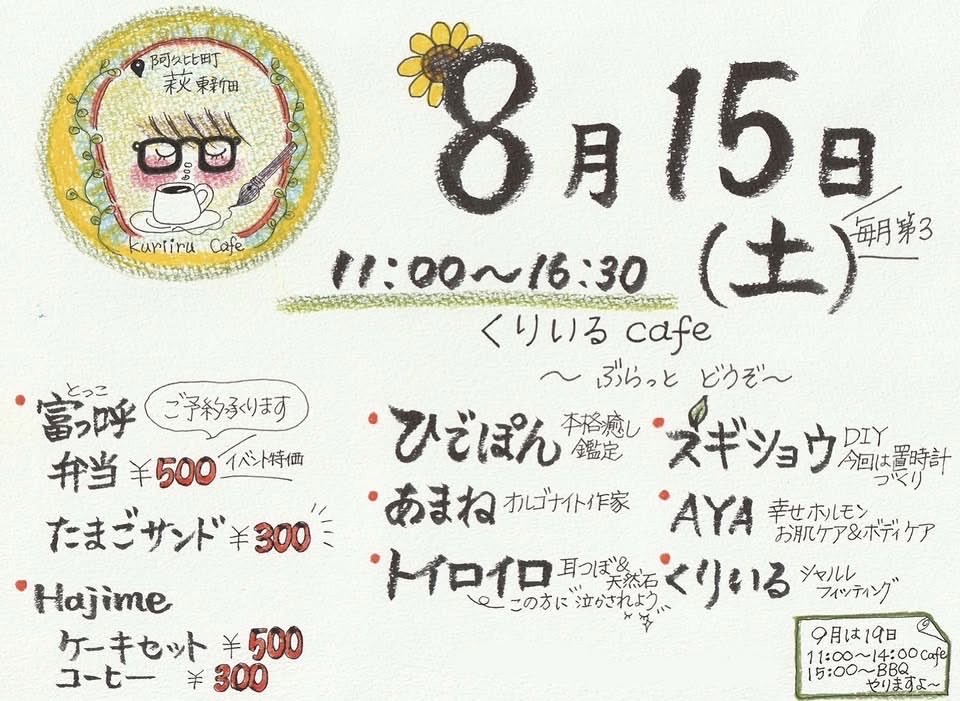 阿久比町
萩東新田
Kuriiru Cafe
8月15日
(土)
毎月第3
11:00～16:30
くりいる cafe
～ ぶらっと どうぞ～
とっこ
富っ呼
ご予約承ります
弁当 ¥500
イベント特価
たまごサンド ¥300
Hajime
ケーキセット ¥500
コーヒー ¥300
ひでぽん
本格癒し
鑑定
あまね オルゴナイト作家
トイロイロ
耳つぼ&
天然石
この方に泣かされよう
スギショウ
DIY
今回は置時計
づくり
AYA
幸せホルモン
お肌ケア&ボディケア
くりいる
シャルレ
フィッティング
9月は19日
11:00～14:00 Cafe
15:00～BBQ
やりますよ～